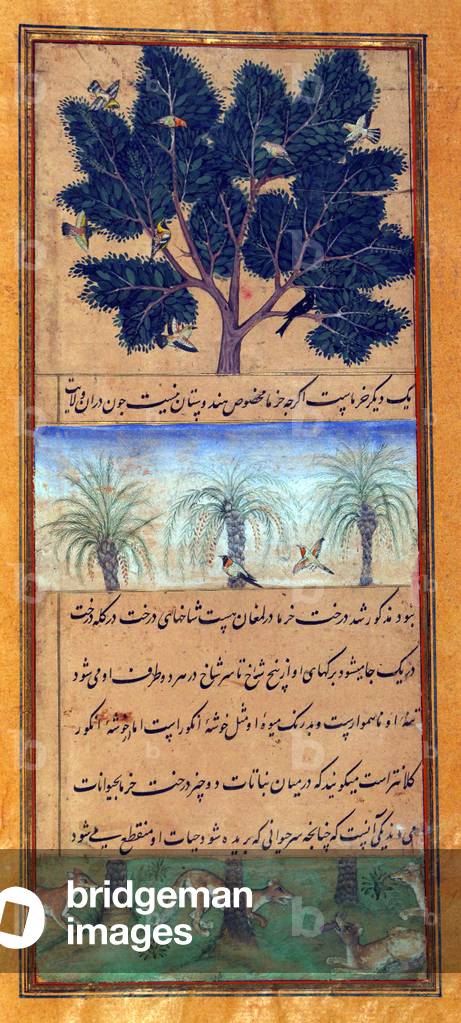 یک دیگر خرماست اگرچه خرما مخصوص هندوستان نیست چون دران ولایت
نبود مذکور شد درخت خرما در لمغان هست شاخهای درخت در کله درخت
در یک جا میشود برگهای او از بیخ شاخ تا سر شاخ در هر دو طرف او می شود
تنهٔ او ناهموارست و بدرنک میوه او مثل خوشهٔ انگور است اما خوشهٔ انگور
کلانتر است میگویند که درمیان نباتات دو چیز درخت خرما بحیوانات
می ماند یکی آنست که چنانچه سر حیوانی که بریده شود حیات او منقطع می شود
bridgeman
images